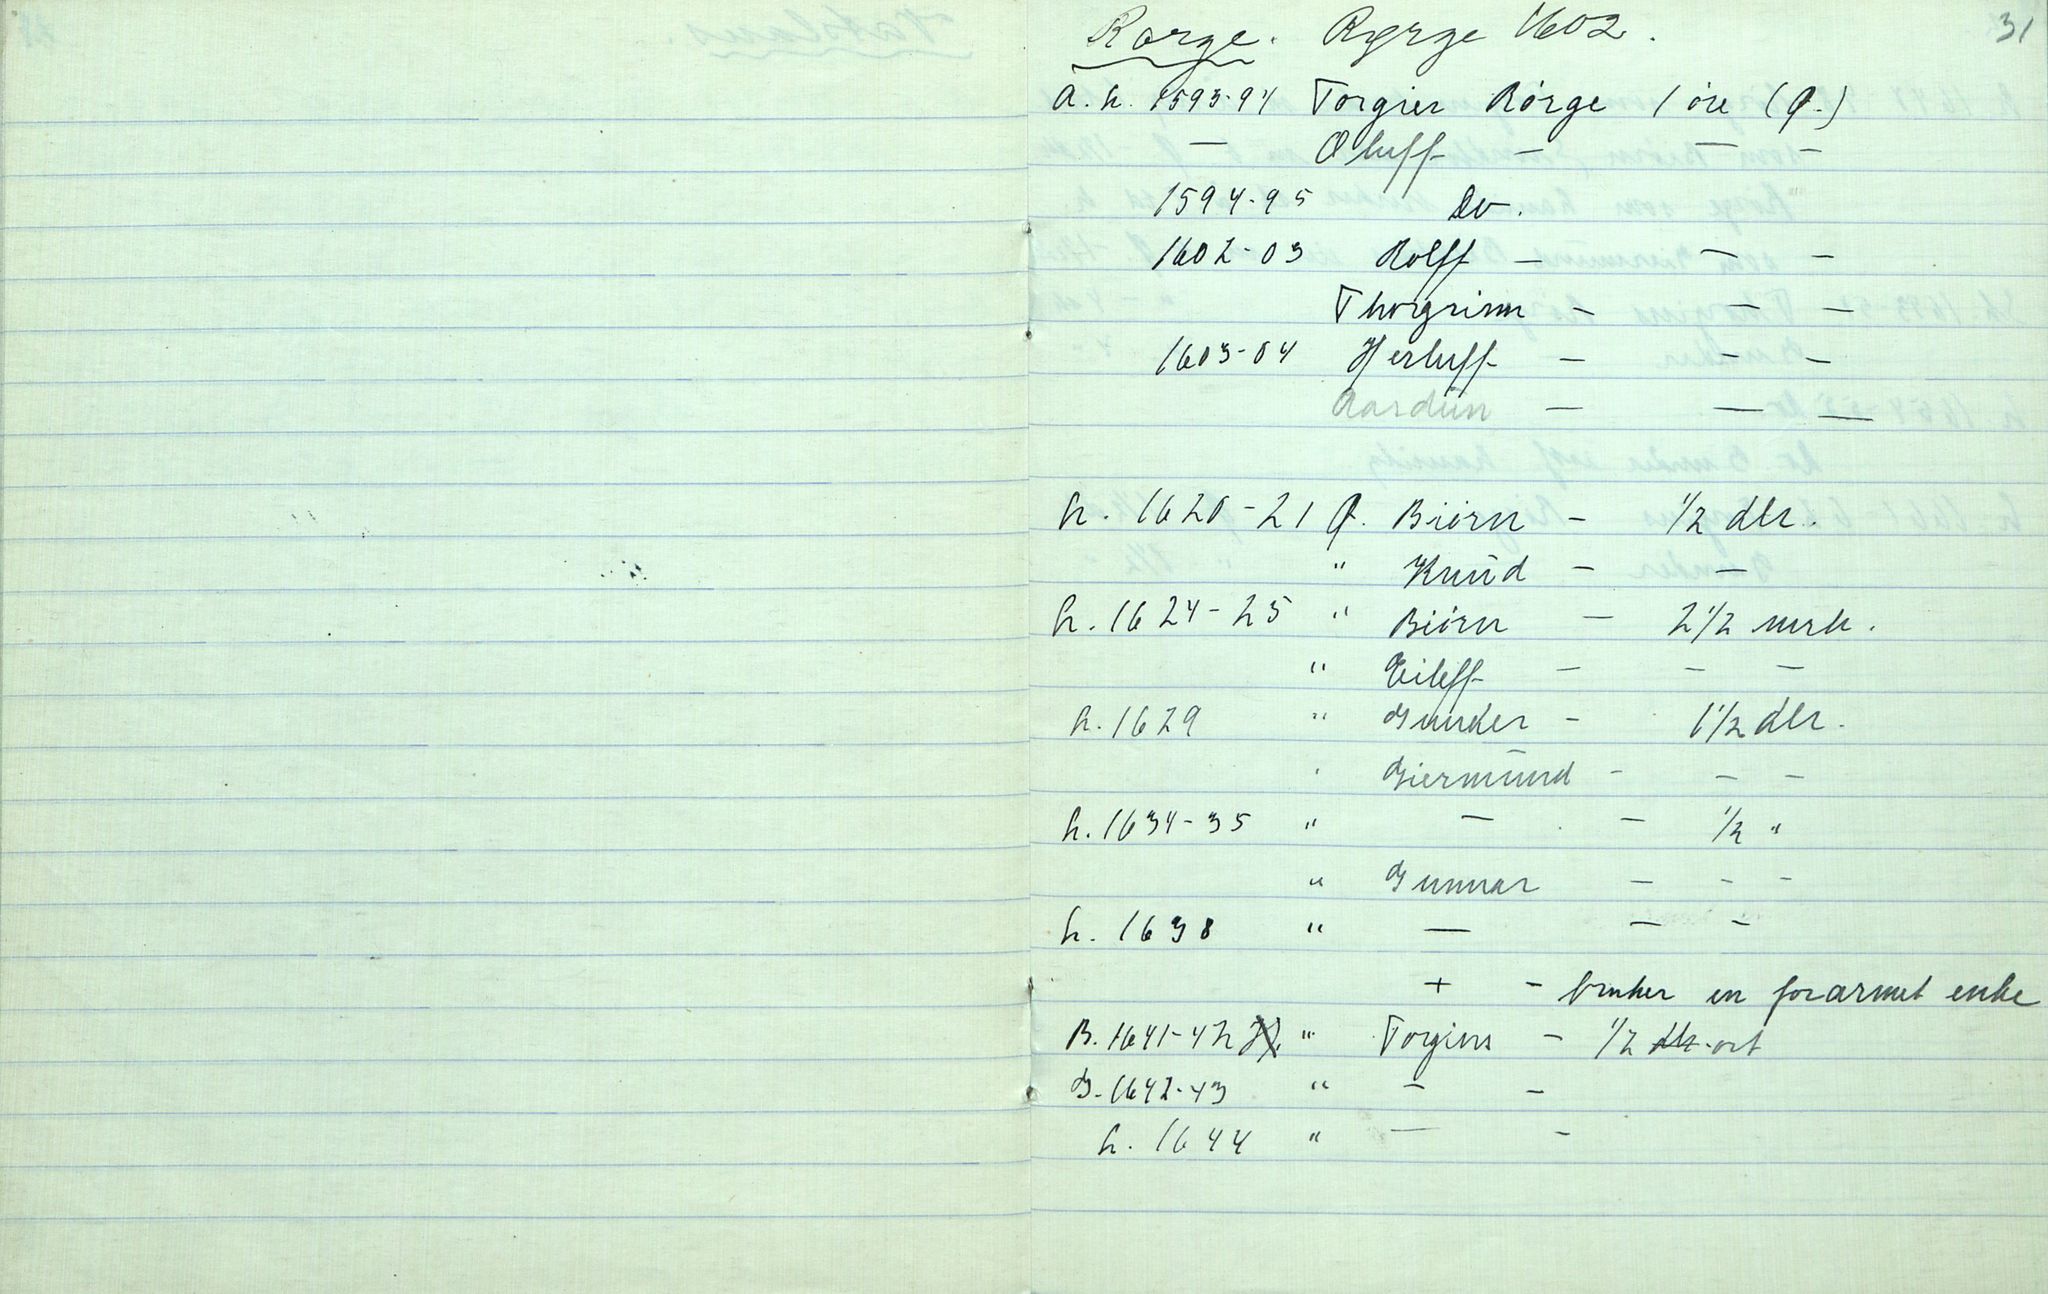 31
Rørge. Rørge 1602.
A. h. 1593-94 Torgier Rørge 1 öre (Q.)
— Oluff — — —
1594-95 Do.
1602-03 Rolff — — —
Thorgrim — — —
1603-04 Herluff — — —
Aardun — — —
h. 1620-21 Q. Biörn — 1/2 dlr.
" Knud — —
h. 1624-25 " Biörn — 2 1/2 mrk.
" Eileff — — —
h. 1629 " Gunder — 1 1/2 dlr.
" Giermund — — —
h. 1634-35 " — — 1/2 "
" Gunnar — — —
h. 1638 " — — —
+ — bruker en forarmet enke
B. 1641-42 " Torgius — 1/2 dlr. ort
B. 1642-43 " — —
h. 1644 " — —